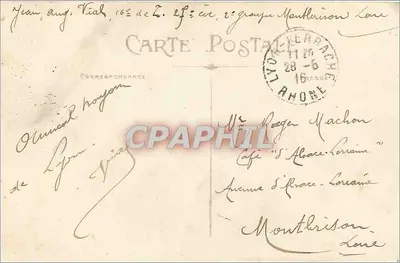 Jean, Aug. Vial, 16e de L. 27e Cie, 2e groupe Montbrison Loire
CARTE POSTALE
CORRESPONDANCE
LYON-PERRACHE
11 20
28-5
16
RHONE
Amical
de Lyon
Vial
CPAPHIL
Mr Roger Machon
Café "d'Alsace-Lorraine"
Avenue d'Alsace-Lorraine
Montbrison
Loire